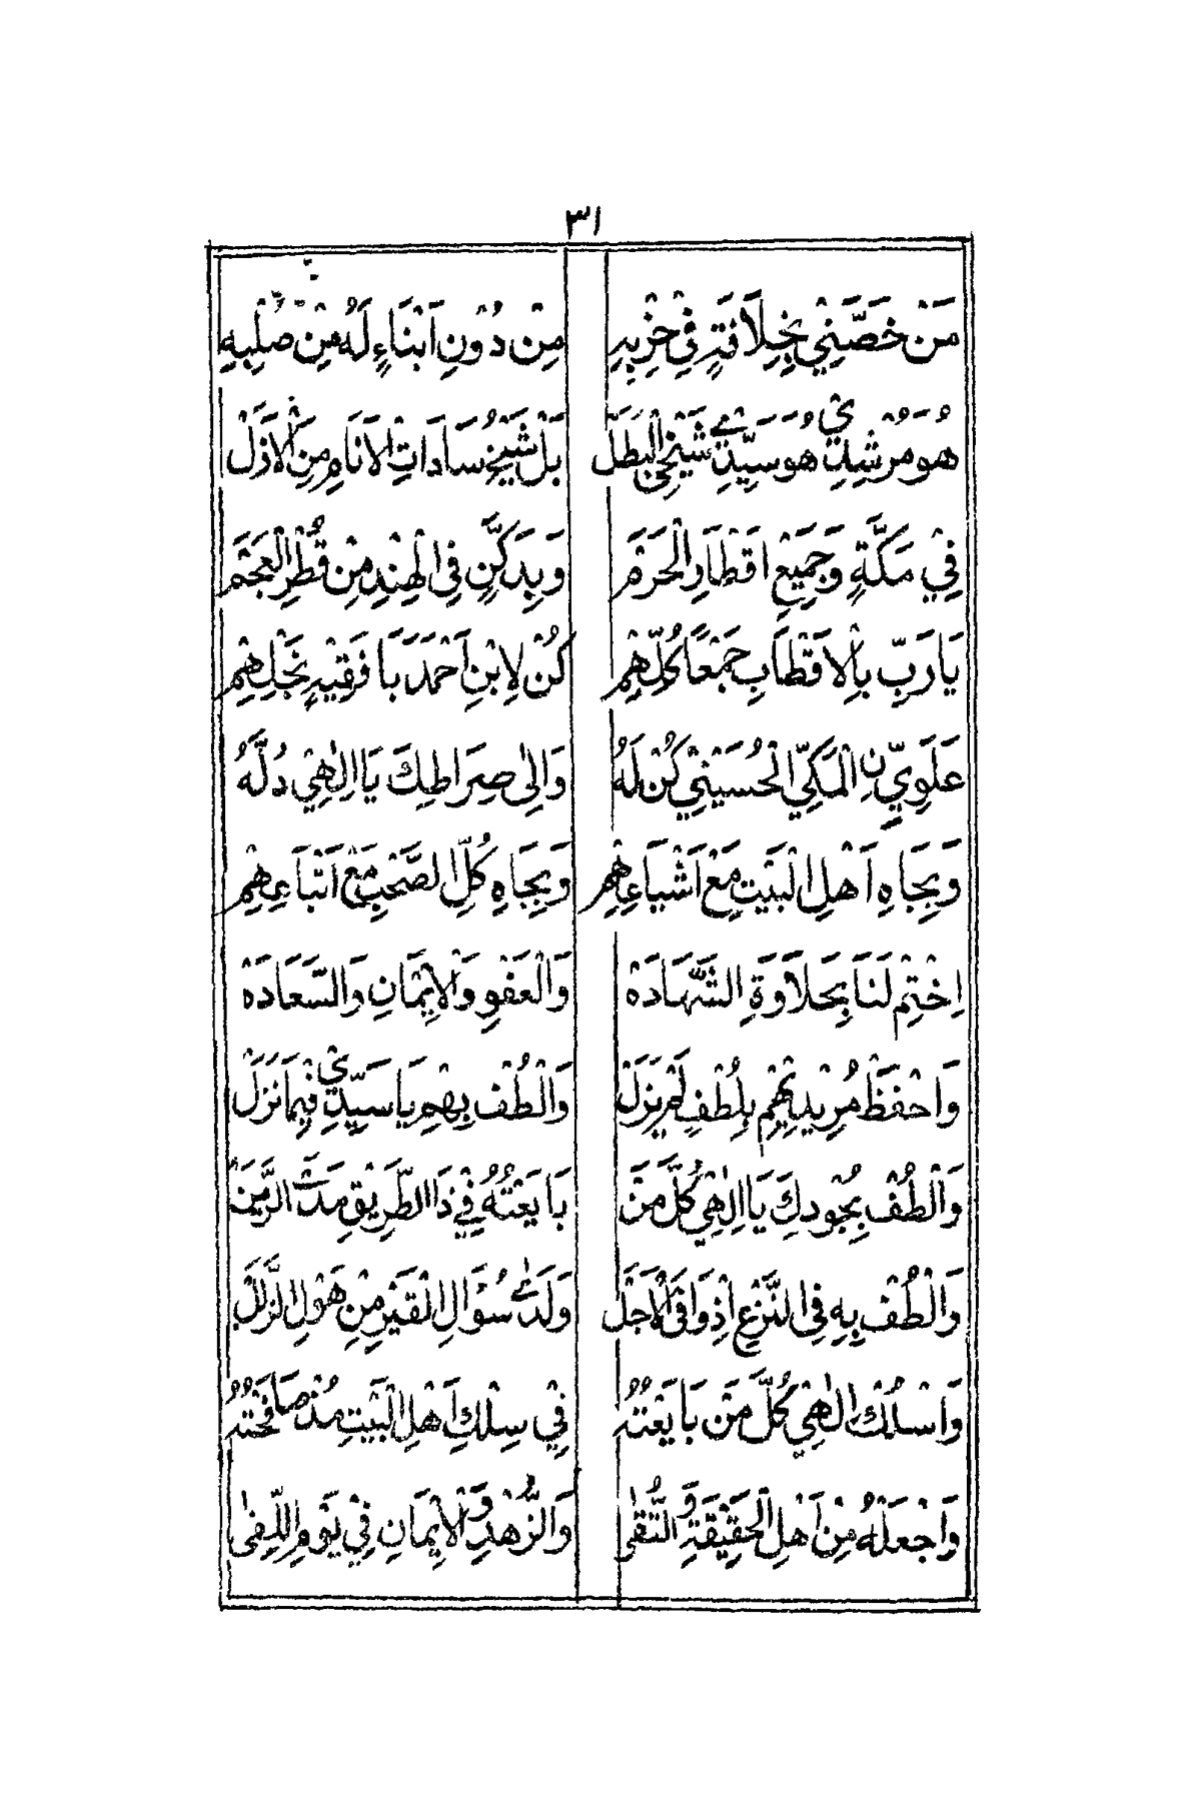 ٣١
مَنْ خَصَّنِيْ بِخِلَافَةٍ فِيْ حِزْبِهِ مِنْ دُوْنِ اَبْنَاءٍ لَهُ مِنْ صُلْبِهِ
هُوَ مُرْشِدِيْ هُوَ سَيِّدِيْ شَيْخِي الْبَطَلْ بَلْ شَيْخُ سَادَاتِ الْاَنَامِ مِنَ الْاَزَلْ
فِيْ مَكَّةٍ وَجَمِيْعِ اَقْطَارِ الْحَرَمْ وَبِدَكَّنٍ فِي الْهِنْدِ مِنْ قُطْرِ الْعَجَمْ
يَا رَبِّ بِالْاَقْطَابِ جَمْعًا كُلِّهِمْ كُنْ لِابْنِ اَحْمَدَ بَا فَقِيْهٍ نَجْلِهِمْ
عَلَوِيِّ نِ الْمَكِّيِّ الْحُسَيْنِيْ كُنْ لَهُ وَاِلٰى صِرَاطِكَ يَا اِلٰهِيْ دُلَّهُ
وَبِجَاهِ اَهْلِ الْبَيْتِ مَعْ اَشْيَاعِهِمْ وَبِجَاهِ كُلِّ الصَّحْبِ مَعْ اَتْبَاعِهِمْ
اِخْتِمْ لَنَا بِحَلَاوَةِ الشَّهَادَهْ وَالْعَفْوِ وَالْاِيْمَانِ وَالسَّعَادَهْ
وَاحْفَظْ مُرِيْدِيْهِمْ بِلُطْفٍ لَمْ يَزَلْ وَالْطُفْ بِهِمْ يَا سَيِّدِيْ فِيْمَا نَزَلْ
وَالْطُفْ بِجُوْدِكَ يَا اِلٰهِيْ كُلَّ مَنْ بَايَعْتُهُ فِيْ ذَا الطَّرِيْقِ مَدَى الزَّمَنْ
وَالْطُفْ بِهِ فِي النَّزْعِ اِذْ وَافَى الْاَجَلْ وَلَدٰى سُؤَالِ الْقَبْرِ مِنْ هَوْلِ الزَّلَلْ
وَاسْلُكْ اِلٰهِيْ كُلَّ مَنْ بَايَعْتُهُ فِيْ سِلْكِ اَهْلِ الْبَيْتِ مُذْ صَافَحْتُهُ
وَاجْعَلْهُ مِنْ اَهْلِ الْحَقِيْقَةِ وَالتُّقٰى وَالزُّهْدِ وَالْاِيْمَانِ فِيْ يَوْمِ اللِّقٰى